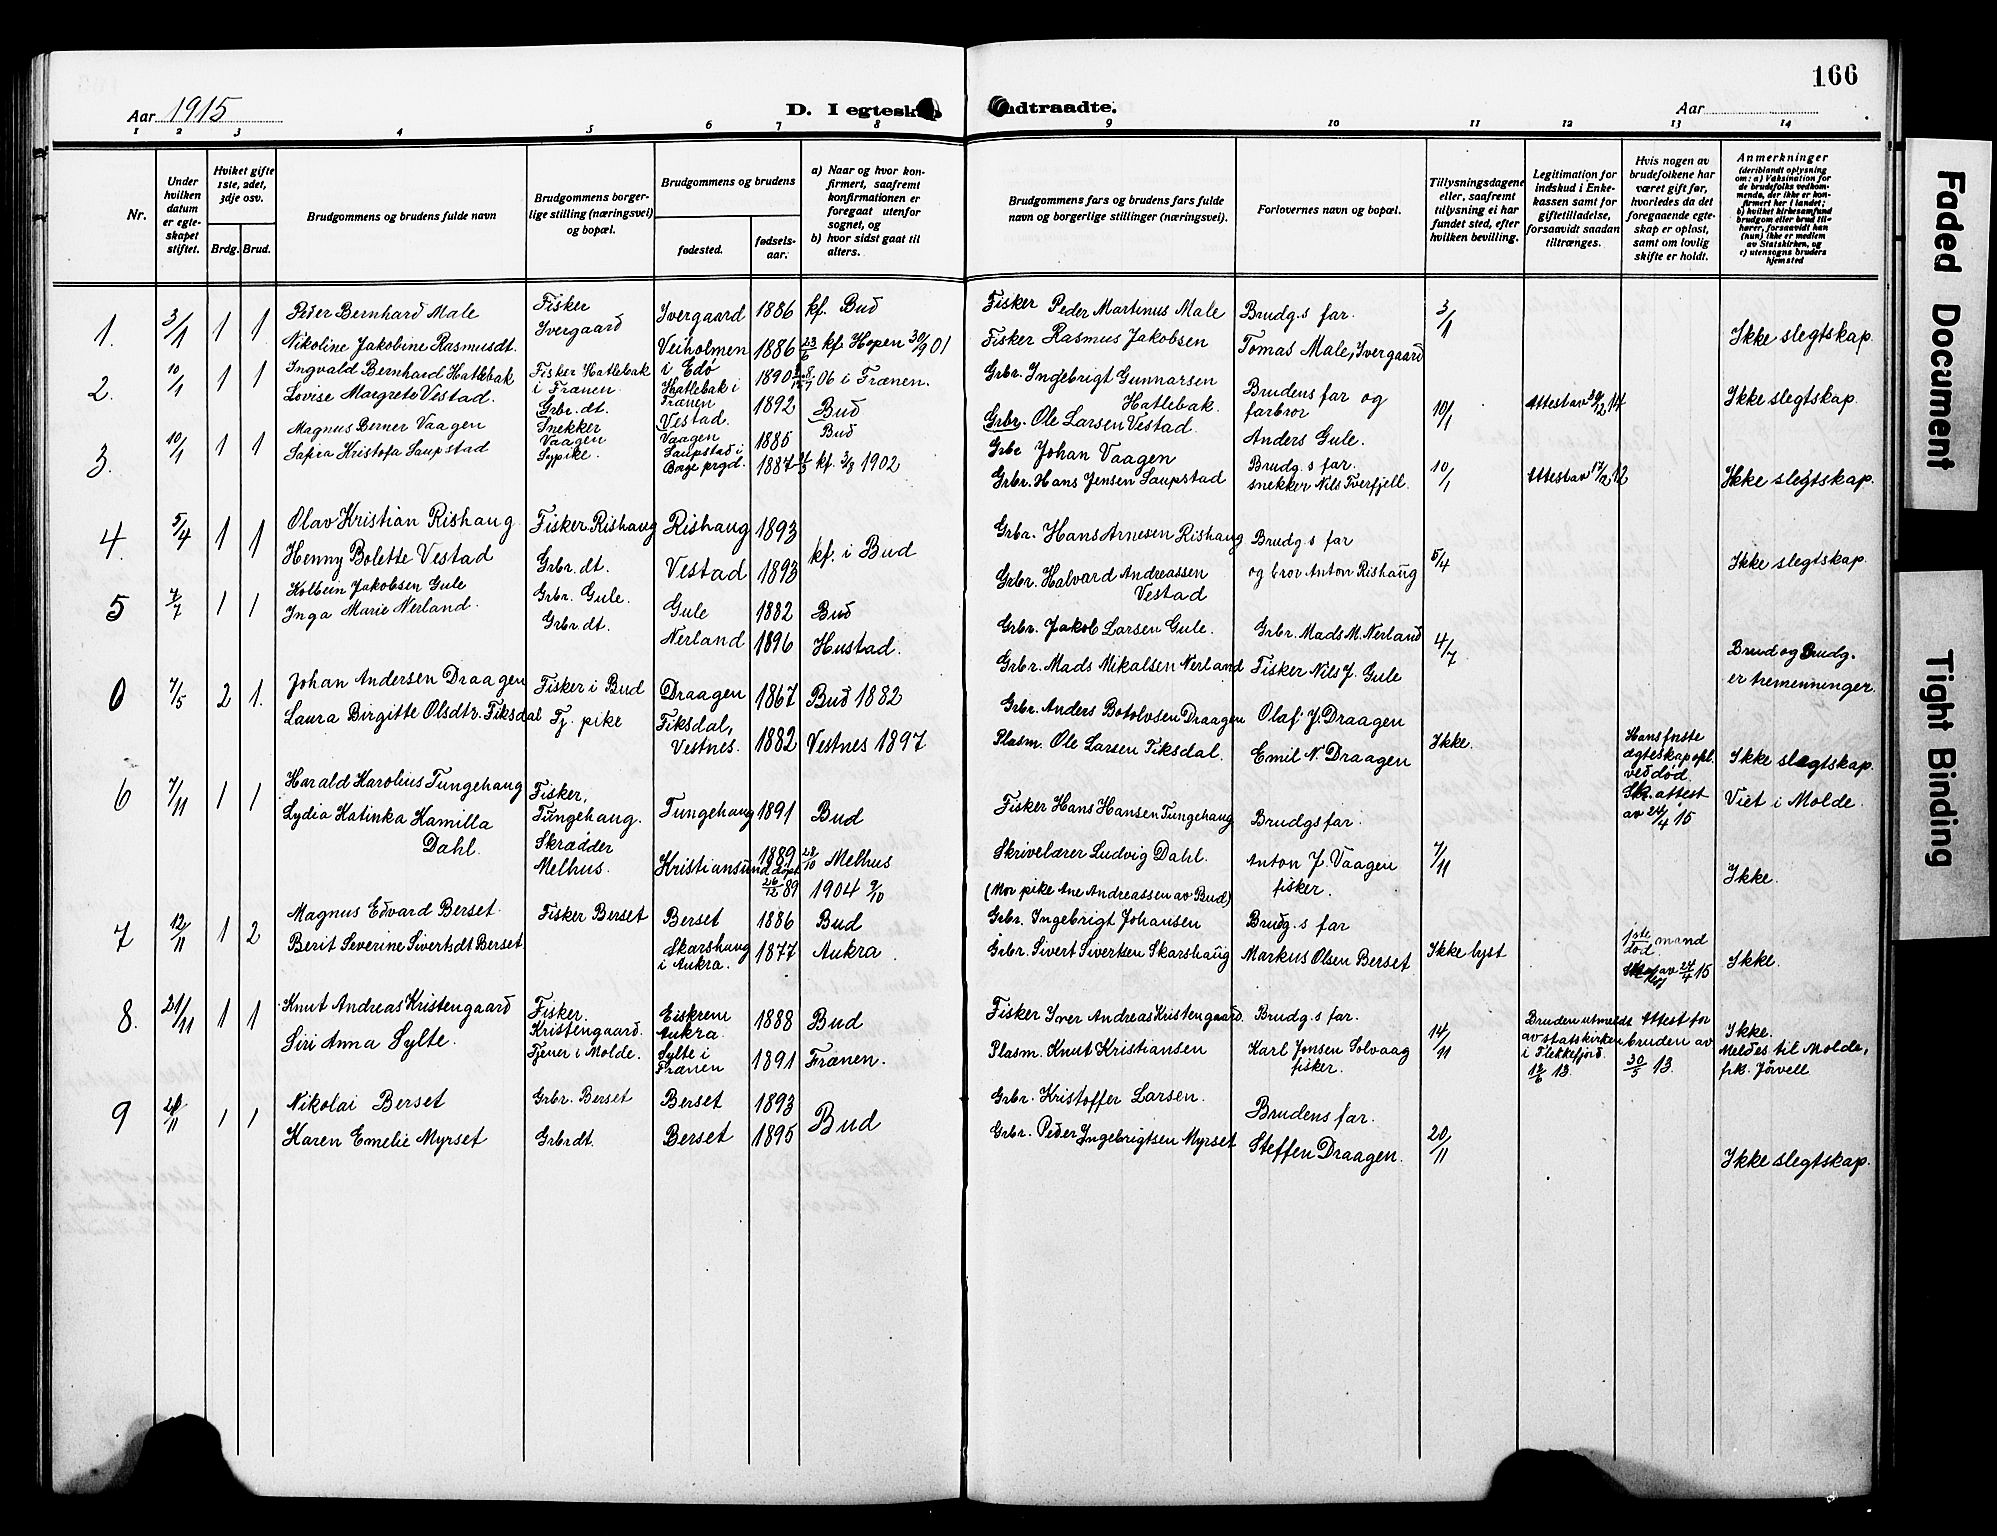 166
Aar 1915
D. I egteska
ndtraadte.
Aar
1 2 3 4 5 6 7 8 9 10 11 12 13 14
Nr.
Under hvilken datum er egte-skapet stiftet.
Hviket gifte 1ste, 2det, 3dje osv.
Brdg. Brud.
Brudgommens og brudens fulde navn
Brudgommens borger-lige stilling (næringsvei) og bopæl.
Brudgommens og brudens
fødested.
fødsels-aar.
a) Naar og hvor kon-firmert, saafremt konfirmationen er foregaat utenfor sognet, og
b) hvor sidst gaat til alters.
Brudgommens fars og brudens fars fulde navn og borgerlige stillinger (næringsvei).
Forlovernes navn og bopæl.
Tillysningsdagene eller, saafremt tillysning ei har fundet sted, efter hvilken bevilling.
Legitimation for indskud i Enke-kassen samt for giftetilladelse, forsaavidt saadan tiltrænges.
Hvis nogen av brudefolkene har været gift før, hvorledes da det foregaaende egte-skap er opløst, samt om lovlig skifte er holdt.
Anmerkninger (deriblandt oplysning om: a) Vaksination for de brudefolks vedkom-mende, der ikke er kon-firmert her i landet; b) hvilket kirkesamfund brudgom eller brud til-hører, forsaavidt han (hun) ikke er medlem av Statskirken, og c) utensogns bruders hjemsted
1. 3/1 1 1 Peder Bernhard Male Fisker Ivergaard Ivergaard 1886 kf. Bud Fisker Peder Martinus Male Brudg.s far. 3/1
Nikoline Jakobine Rasmusdt. Veiholmen i Edö 1886 23/6 kf Hopen 30/9 01 Fisker Rasmus Jakobsen Tomas Male, Ivergaard Ikke slegtskap.
2. 10/1 1 1 Ingvald Bernhard Hatlebak Fisker Hatlebak i Frænen. Hatlebak i Frænen 1890 8/7 06 i Frænen. Grbr. Ingebrigt Gunnarsen Hatlebak. Brudens far og farbror
Lovise Margrete Vestad. Grbr. dt. Vestad. 1892 Bud Grbr. Ole Larsen Vestad. Anders Gule. 10/1 Attest av 29/12 14 Ikke slegtskap.
3. 10/1 1 1 Magnus Berner Vaagen Snekker Vaagen Vaagen 1885 Bud Grbr Johan Vaagen Brudg.s far.
Sapia Kristofa Saupstad Sypike. Saupstad i Borge prgd. 1887 kf. 3/8 1902 Grbr. Hans Jensen Saupstad snekker Nils Tverfjell. 10/1 Attest av 17/12 12 Ikke slegtskap.
4. 5/4 1 1 Olav Kristian Rishaug Fisker Rishaug Rishaug 1893 kf. i Bud Grbr. Hans Arnesen Rishaug Brudg.s far
Henny Bolette Vestad Grbr. dt. Vestad 1893 Grbr. Halvard Andreassen Vestad og bror Anton Rishaug 5/4 Ikke slegtskap.
5 7/7 1 1 Kolbein Jakobsen Gule Grbr. Gule. Gule 1882 Bud Grbr. Jakob Larsen Gule. Grbr. Mads M. Nerland 4/7
Inga Marie Nerland. Grbr. dt. Nerland 1896 Hustad. Grbr. Mads Mikalsen Nerland Fisker Nils J. Gule Brud og Brudg. er tremenninger.
0 7/5 2 1. Johan Andersen Draagen Fisker i Bud Draagen 1867 Bud 1882 Grbr. Anders Botolvsen Draagen Olaf J. Draagen
Laura Birgitte Olsdtr. Fiksdal Tj. pike Fiksdal, Vestnes. 1882 Vestnes 1897 Plasm. Ole Larsen Fiksdal. Emil N. Draagen Ikke. Hans første ægteskap opl. ved död. Sk. attest av 24/4 '15 Ikke slegtskap. Viet i Molde.
6 7/11 1 1 Harald Karolius Tungehaug Fisker, Tungehaug. Tungehaug 1891 Bud Fisker Hans Hansen Tungehaug Brudgs far.
Lydia Katinka Kamilla Dahl. Skrædder Melhus. Kristiansund 1889 döpt 26/12 89 28/10 Melhus 1904 9/10 Skrivelærer Ludvig Dahl. (Mor pike Ane Andreassen av Bud) Anton J. Vaagen fisker. 7/11 Ikke.
7 12/11 1 2 Magnus Edvard Berset. Fisker Berset Berset 1886 Bud Grbr. Ingebrigt Johansen Brudg.s far
Berit Severine Sivertsdt Berset Skarshaug i Aukra. 1877 Aukra. Grbr. Sivert Sivertsen Skarshaug Markus Olsen Berset Ikke lyst 1ste mand död. av 24/4 15 Ikke.
8. 21/11 1 1 Knut Andreas Kristengaard Fisker. Kristengaard. Eiskrem Aukra. 1888 Bud Fisker Iver Andreas Kristengaard. Brudg.s far.
Siri Anna Sylte. Tjener i Molde. Sylte i Frænen 1891 Frænen. Plasm. Knut Kristiansen Karl Jonsen Solvaag fisker. 14/11 Bruden utmeldt av statskirken i Flekkefjord. 12/6 13. Attest for bruden av 30/5 13. Ikke. Meldes til Molde, frk. Jörvell
9 28/11 1 1 Nikolai Berset Grbr. Berset Berset 1893 Bud Grbr. Kristoffer Larsen. Brudens far.
Karen Emelie Myrset Grbrdt. Berset 1895 Grbr. Peder Ingebrigtsen Myrset Steffen Draagen. 20/11 Ikke slegtskap.
Faded Document
Tight Binding